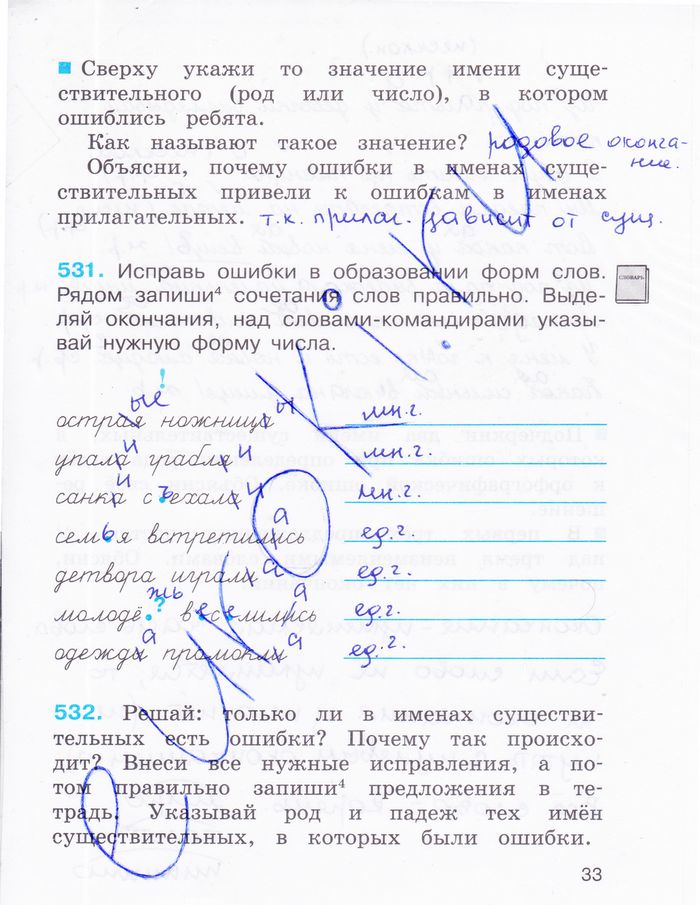 Сверху укажи то значение имени суще-
ствительного (род или число), в котором
ошиблись ребята.
Как называют такое значение? родовое оконча-
ние.
Объясни, почему ошибки в именах суще-
ствительных привели к ошибкам в именах
прилагательных. т.к. прилаг. зависит от сущ.
531. Исправь ошибки в образовании форм слов.
Рядом запиши⁴ сочетания слов правильно. Выде-
ляй окончания, над словами-командирами указы-
вай нужную форму числа.
СЛОВАРЬ
!
ые ы
острая ножница мн.ч.
и и
упала грабля мн.ч.
и и
санка съехала мн.ч.
а
семья встретились ед.ч.
а
детвора играли ед.ч.
жь ? а
молодё. веселились ед.ч.
а а
одежды промокли ед.ч.
532. Решай: только ли в именах существи-
тельных есть ошибки? Почему так происхо-
дит? Внеси все нужные исправления, а по-
том правильно запиши⁴ предложения в те-
традь. Указывай род и падеж тех имён
существительных, в которых были ошибки.
33